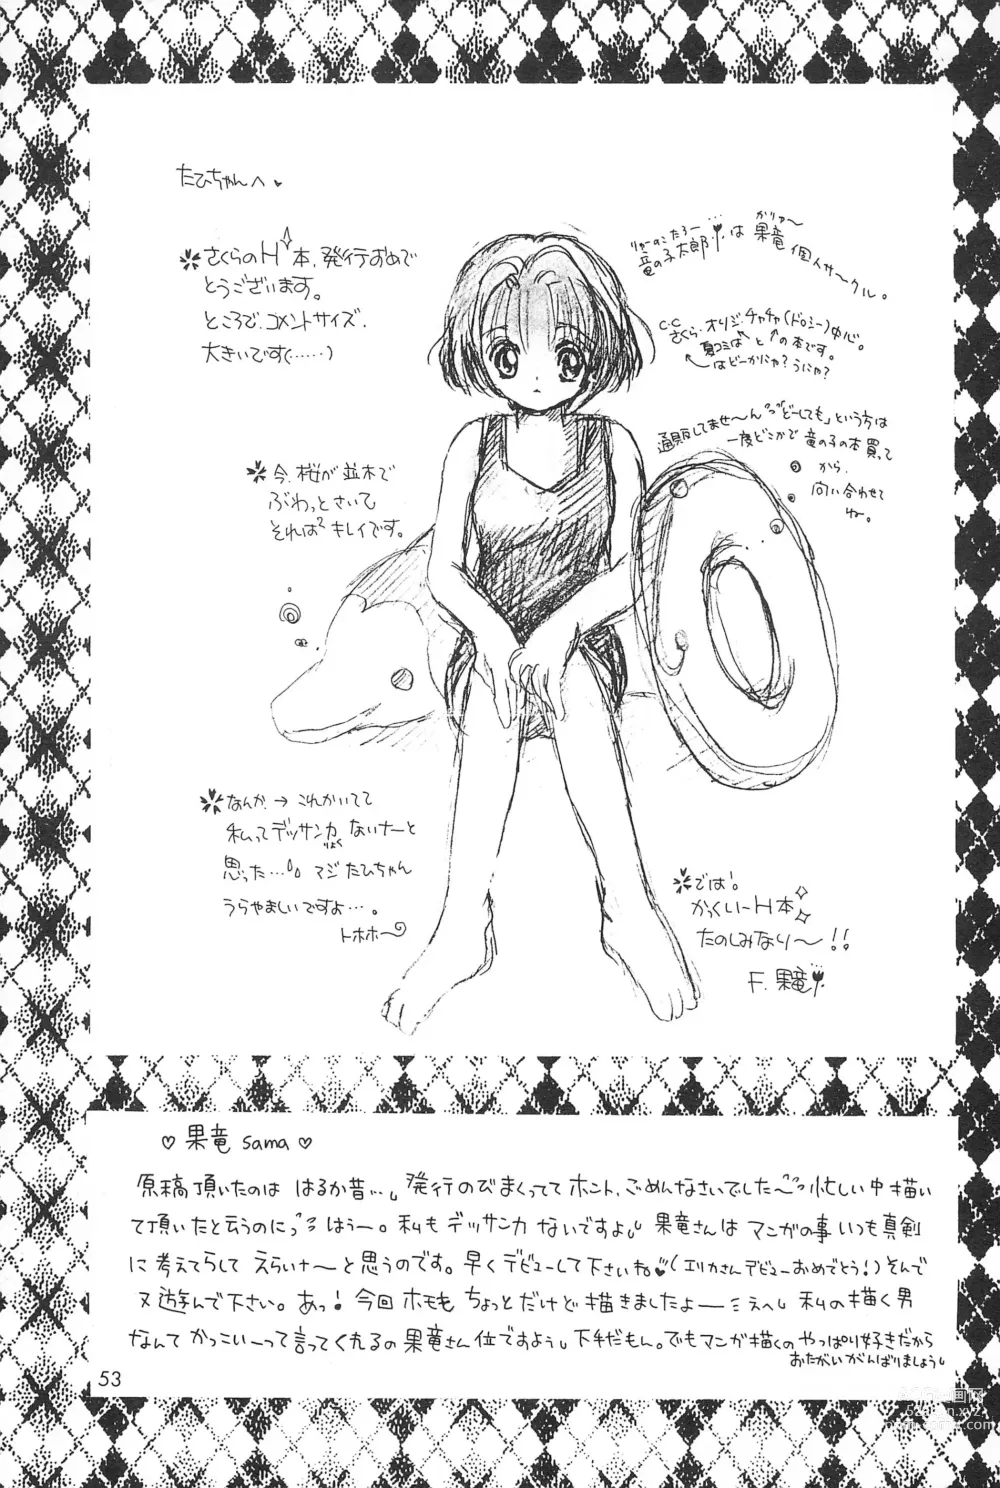 たひちゃんへ
さくらのH本、発行おめで
とうございます。
ところで、コメントサイズ、
大きいです(……)
りゅーのこたろー
竜の子太郎は
かりゅ〜
果竜 個人サークル。
C.C
さくら、オリジ、チャチャ(ドロシー)中心。
夏コミは と↑の本です。
はどーかにゃ?うにゃ?
通販してませ〜ん "どーしても"という方は
一度どこかで竜の子の本買って
から、
問い合わせて
ね。
今、桜が並木で
ぶわっとさいて
それは² キレイです。
なんか→これかいてて
私ってデッサンカ ないナーと
りょく
思った… マジたひちゃん
うらやましいですよ…。
トホホ〜
では!
かっくいーH本
たのしみなり〜!!
F.果竜
♡果竜 sama♡
原稿頂いたのは はるか昔… 発行のびまくっててホント、ごめんなさいでした〜 忙しい中描い
て頂いたと云うのに はぅー。私もデッサン力ないですよ。果竜さんはマンガの事いつも真剣
に考えてらして えらいナ〜と思うのです。早くデビューして下さいね♡(エリカさんデビューおめでとう!)そんで
又遊んで下さい。あっ!今回ホモもちょっとだけど描きましたよー ミえへ 私の描く男
なんてかっこいーって言ってくれるの果竜さん位ですよう 下手だもん。でもマンガ描くのやっぱり好きだから
おたがいがんばりましょう
53